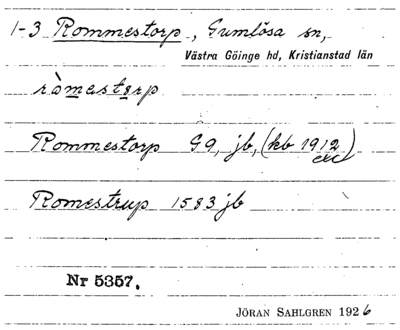 1-3 Rommestorp, Gumlösa sn,
Västra Göinge hd, Kristianstad län
ròmestərp
Rommestorp G9, jb, (kb 1912)
Romestrup 1583 jb
Nr 5357.
JÖRAN SAHLGREN 1926